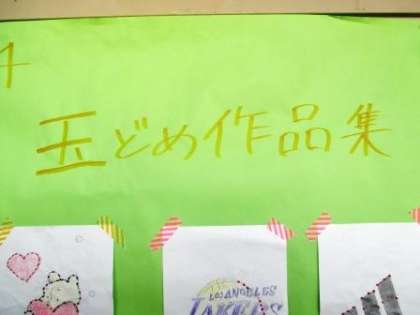 玉どめ作品集
LOS ANGELES
LAKERS